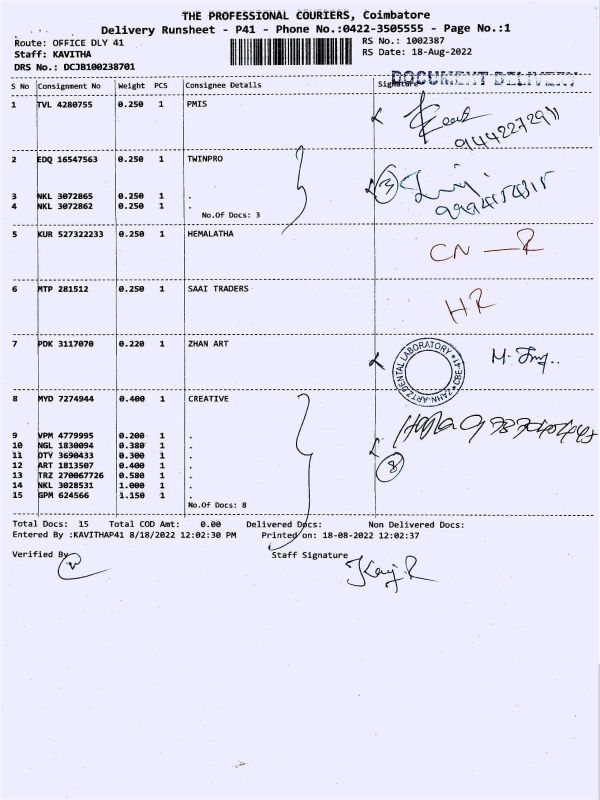 THE PROFESSIONAL COURIERS, Coimbatore
Delivery Runsheet - P41 - Phone No.:0422-3505555 - Page No.:1
Route: OFFICE DLY 41
RS No.: 1002387
Staff: KAVITHA
RS Date: 18-Aug-2022
DRS No.: DCJB100238701
DOCUMENT DELIVERY
S No Consignment No Weight PCS Consignee Details Signature
1 TVL 4280755 0.250 1 PMIS
2 EDQ 16547563 0.250 1 TWINPRO
3 NKL 3072865 0.250 1 .
4 NKL 3072862 0.250 1 .
No.Of Docs: 3
3
5 KUR 527322233 0.250 1 HEMALATHA
CN — R
6 MTP 281512 0.250 1 SAAI TRADERS
HR
7 PDK 3117070 0.220 1 ZHAN ART
ZAHN-ARTZ DENTAL LABORATORY * CBE-41 *
8 MYD 7274944 0.400 1 CREATIVE
9 VPM 4779995 0.200 1 .
10 NGL 1830094 0.380 1 .
11 DTY 3690433 0.300 1 .
12 ART 1813507 0.400 1 .
13 TRZ 270067726 0.580 1 .
14 NKL 3028531 1.000 1 .
15 GPM 624566 1.150 1 .
8
No.Of Docs: 8
Total Docs: 15 Total COD Amt: 0.00 Delivered Docs: Non Delivered Docs:
Entered By :KAVITHAP41 8/18/2022 12:02:30 PM Printed on: 18-08-2022 12:02:37
Verified By Staff Signature